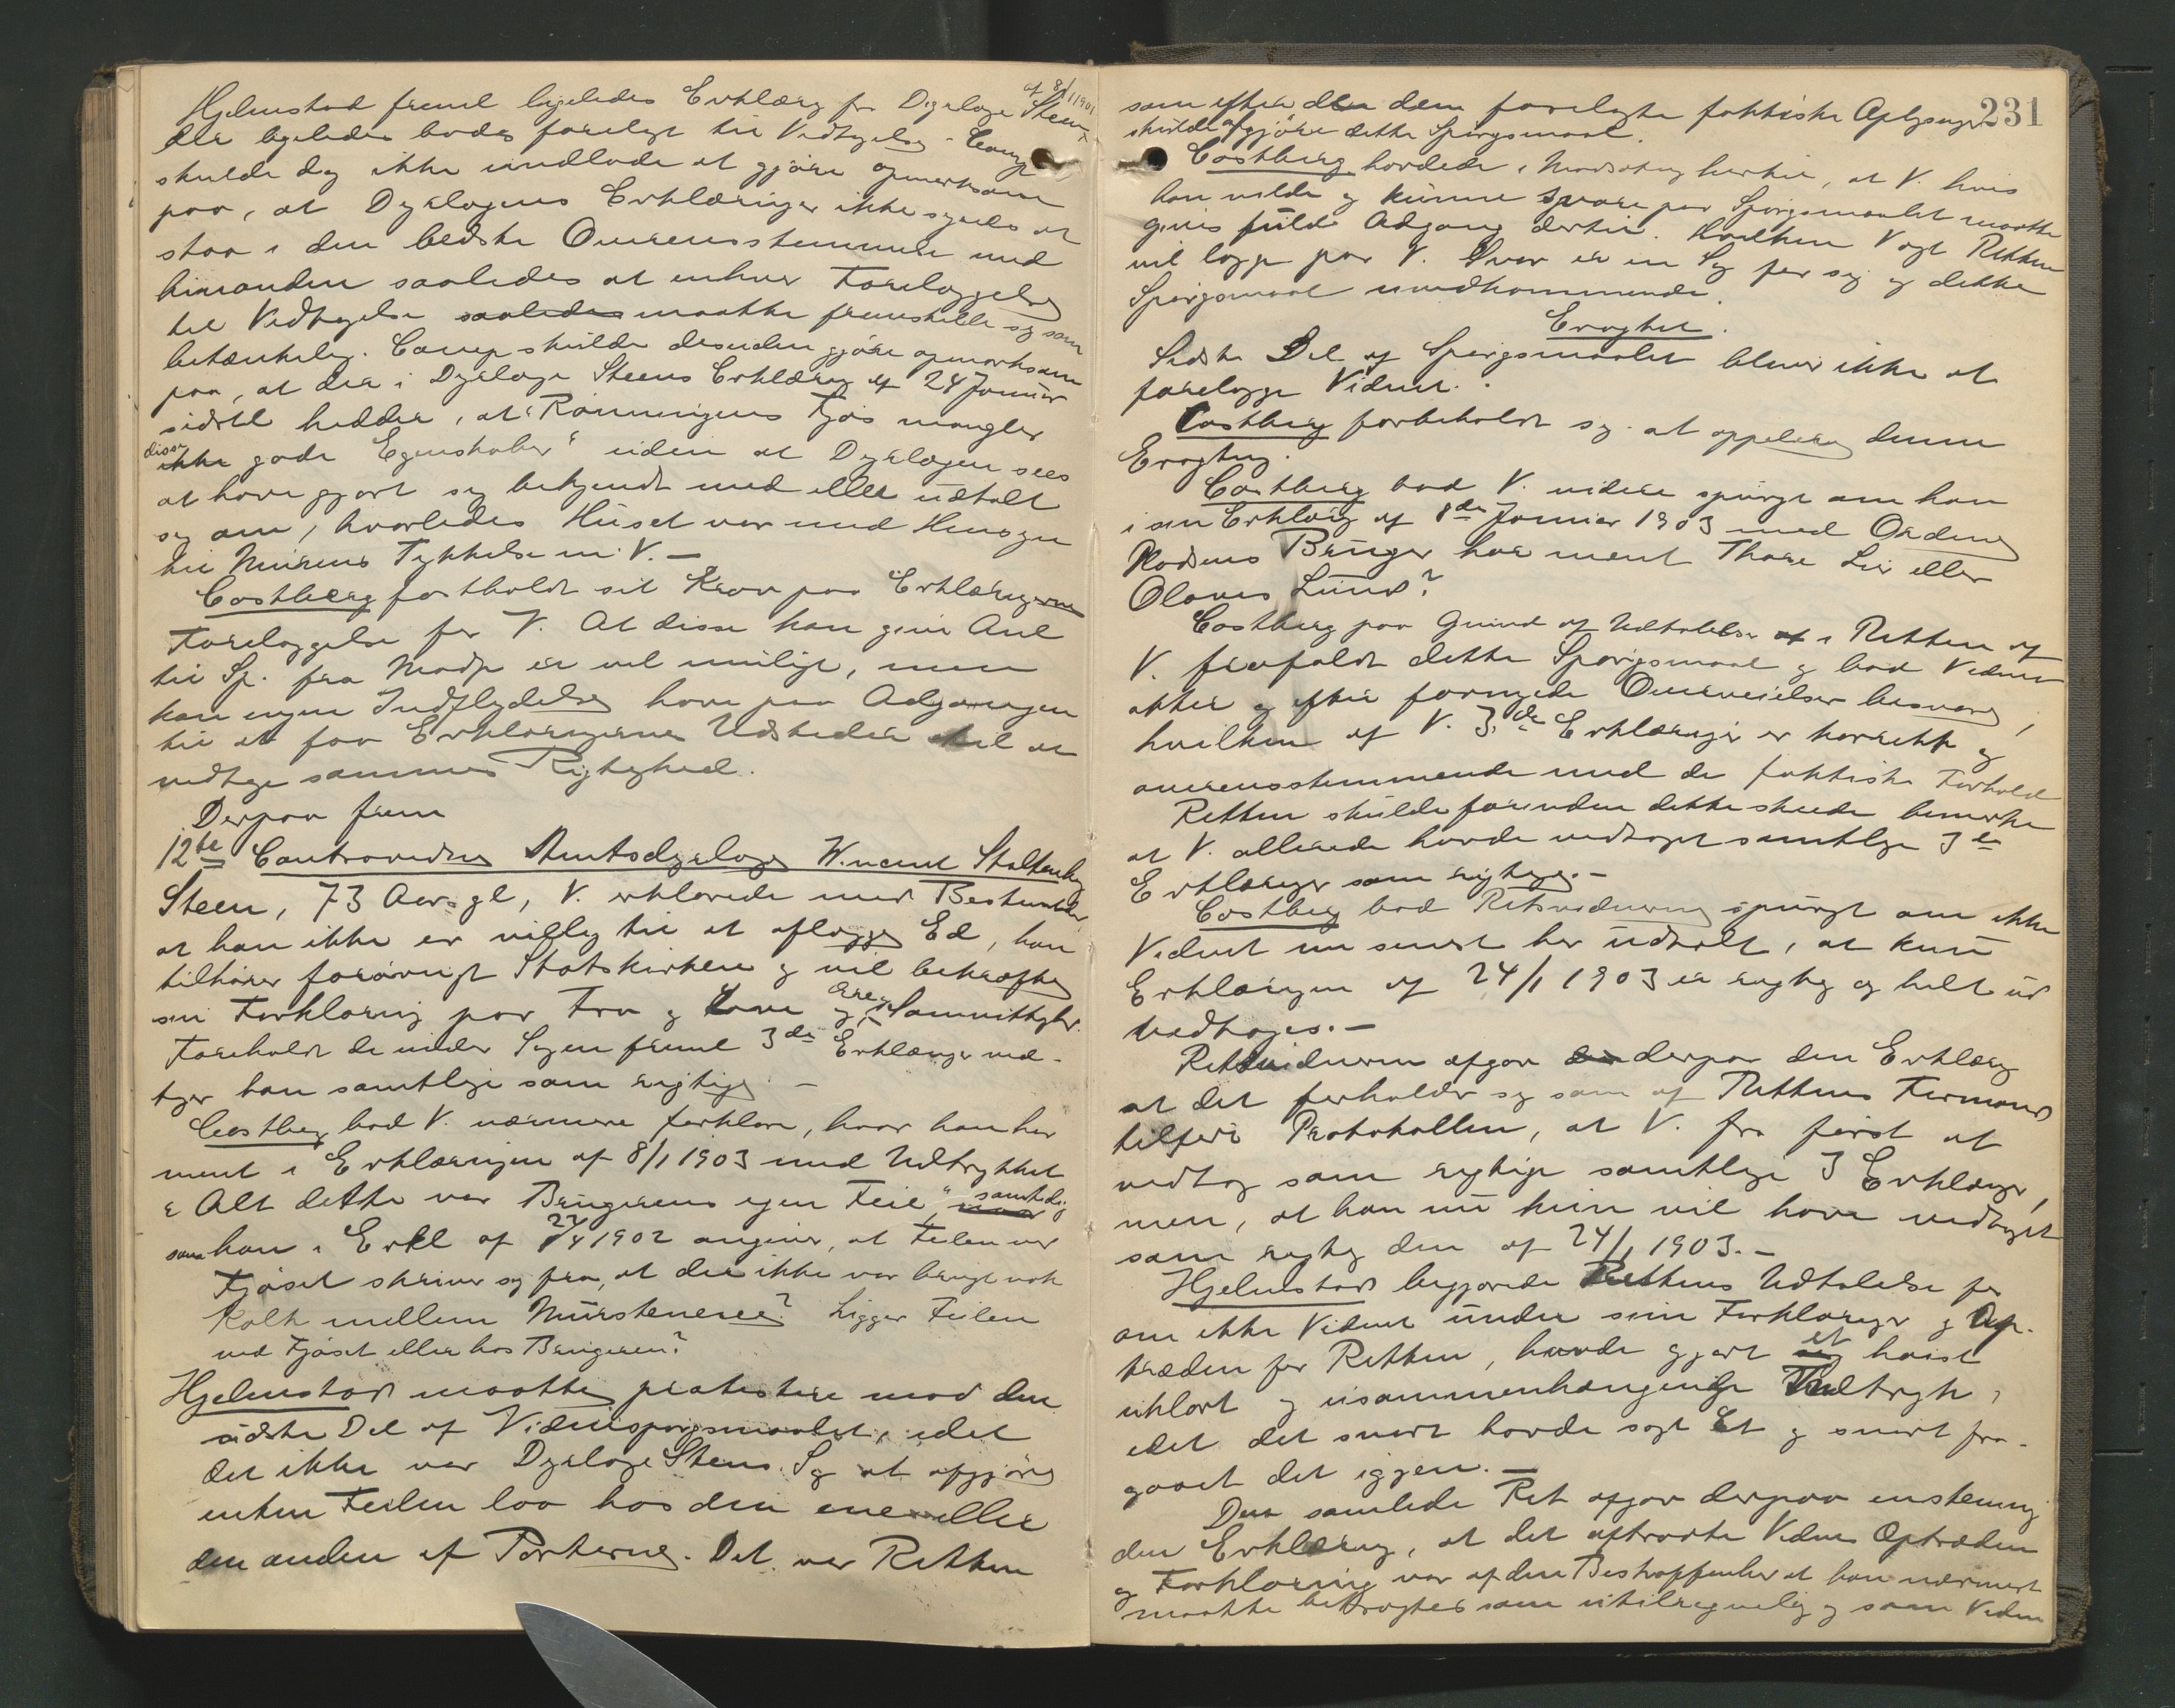 Hjelmstad freml ligeledes Erklærg fra Dyrlæge Steen af 8/1 1901
der ligeledes bades forelagt til Vedtagelse - Comp
skulde dog ikke undlade at gjøre opmerksom
paa, at Dyrlægens Erklæringer ikke synes at
staa i den bedste Overensstemmelse med
hinanden saaledes at enhver Foreleggelse
til Vedtagelse saaledes maatte fremstille sig som
betænkelig. Comp skulde desuden gjøre opmærksom
paa, at der i Dyrlæge Steens Erklæring af 24 Januar
sidstl hedder, at "Rønningens Fjøs mangler
disse ikke gode Egenskaber" uden at Dyrlægen sees
at have gjort sig bekjendt med eller udtalt
sig om, hvorledes Huset var med Hensyn
til Murens Tykkelse m.V. -
Castberg fastholdt sit Krav paa Erklæringerne
Foreleggelse for V. At disse kan give Anl
til Sp. fra Modp er vel muligt, men
kan ingen Indflydelse have paa Adgangen
til at faa Erklæringernes Udsteder til at
vedtage sammes Rigtighed.
Derpaa frem
12te Contravidne Amtsdyrlæge W. Stoltenberg
Steen, 73 Aar gl, V. erklærede med Bestemthed
at han ikke er villig til at aflægge Ed, han
tilhører forøvrigt Statskirken og vil bekræfte
sin Forklaring paa Tro og Love Ære og Samvittighed.
Foreholdt de under Sagen freml 3de Erklæringer ved-
tager han samtlige som rigtige -
Castberg bad V. nærmere forklare, hvad han har
ment i Erklæringen af 8/1 1903 med Udtrykket
"Alt dette var Brugerens egen Feil", samtidig
som han i Erkl af 27/4 1902 angiver, at Feilen ved
Fjøset skriver sig fra, at der ikke var brugt nok
Kalk mellem Murstenene? Ligger Feilen
ved Fjøset eller hos Brugeren?
Hjelmstad maatte protestere mod den
sidste Del af Vidnespørgsmaalet, idet
det ikke var Dyrlæge Steens Sag at afgjøre
enten Feilen laa hos den ene eller
den anden af Parterne. Det var Retten
231
som efter den dem forelagte faktiske Oplysninger
skulde afgjøre dette Spørgsmaal.
Castberg hævdede i Modsætning hertil, at V. hvis
han vilde og kunne svare paa Spørgsmaalet maatte
gives fuld Adgang dertil. Hvilken Vægt Retten
vil lægge paa V. Svar er en Sag for sig og dette
Spørgsmaal uvedkommende.
Eragtet.
Sidste Del af Spørgsmaalet blev ikke at
forelægge Vidnet.
Castberg forbeholdt sig at appellere denne
Eragtng.
Castberg bad V. videre spurgt om han
i sin Erklærg af 8de Januar 1903 med Ordene
Pladsens Bruger har ment Thore Lie eller
Olaves Lund?
Castberg paa Grund af Udtalelse af i Retten af
V. frafaldt dette Spørgsmaal og bad Vidnet
atter og efter fornyede Overveielser besvare,
hvilken af V. 3de Erklæringer er korrekt og
overensstemmende med de faktiske Forhold
Retten skulde forinden dette skede bemerke
at V. allerede havde vedtaget samtlige 3de
Erklæringer som rigtige. -
Castberg bad Retsvidnerne spurgt om ikke
Vidnet nu senest her udtalt, at kun
Erklæringen af 24/1 1903 er rigtig og helt ud
vedtages. -
Retsvidnerne afgav den derpaa den Erklærg
at det forholder sig som af Rettens Formand
tilført Protokollen, at V. fra først af
vedtog som rigtige samtlige 3 Erklæringer,
men, at han nu kun vil have vedtaget
som rigtig den af 24/1 1903. -
Hjelmstad begjærede Rettens Udtalelse for
om ikke Vidnet under sine Forklaringer og Op-
træden for Retten, havde gjort sig et høist
uklart og usammenhængende Indtryk,
idet det snart havde sagt Et og snart fra-
gaaet det igjen. -
Den samlede Ret afgav derpaa enstemmig
den Erklæring, at det aftraadte Vidnes Optræden
og Forklaring var af den Beskaffenhed at han nærmest
maatte betragtes som utilregnelig og som Vidne